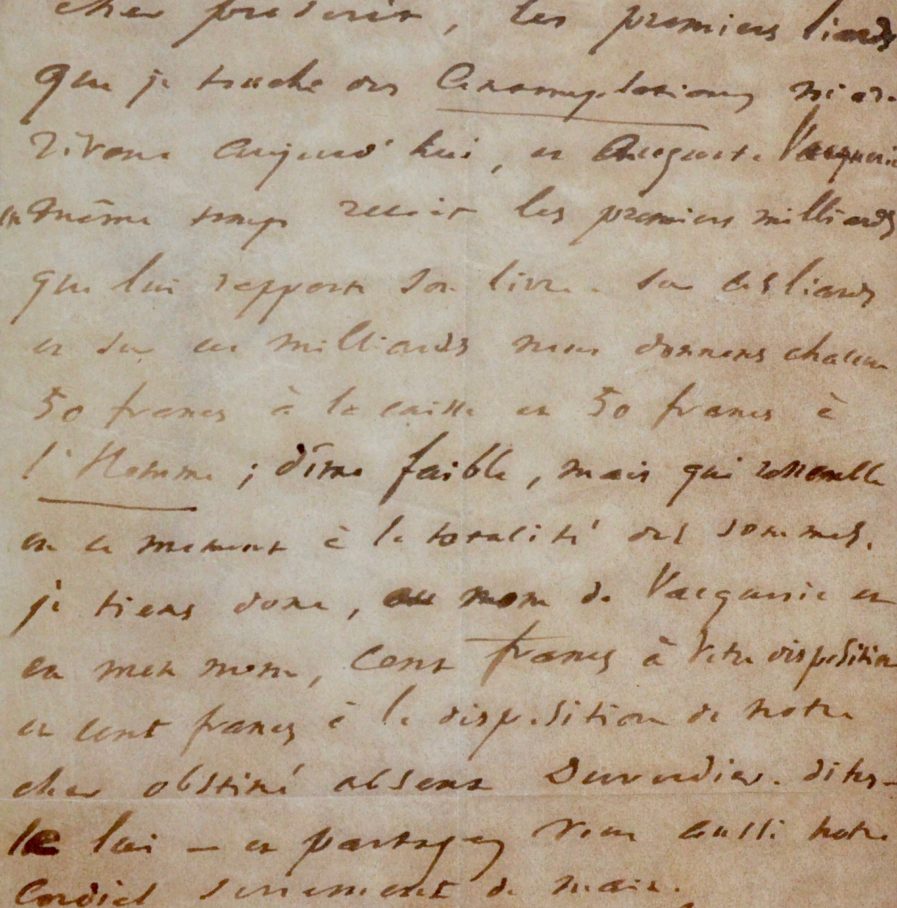 cher proscrit, les premiers liards
que je touche des Contemplations m'ar-
rivent aujourd'hui, et Auguste Vacquerie
en même temps reçoit les premiers milliards
que lui rapporte son livre. Sur ces liards
et sur ces milliards nous donnons chacun
50 francs à la caisse et 50 francs à
l'Homme ; dîme faible, mais qui
en ce moment à la totalité des sommes.
je tiens donc, au nom de Vacquerie et
en mon nom, cent francs à votre disposition
et cent francs à la disposition de notre
cher obstiné absent Duverdier. dites-
le lui — et partagez vous aussi notre
cordial serrement de main.